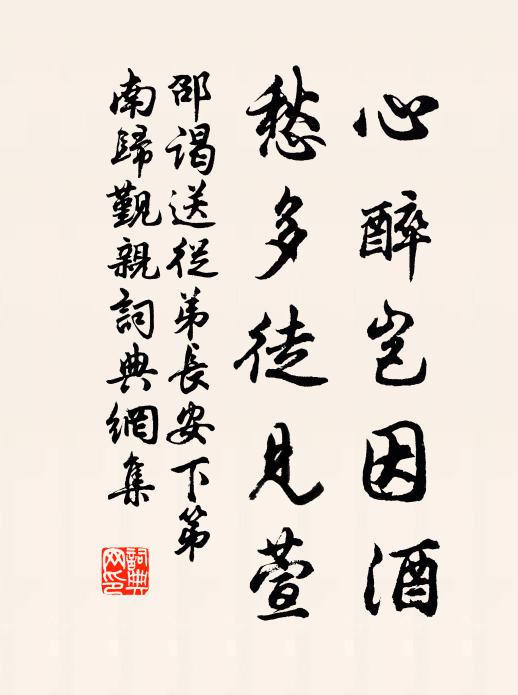 心醉岂因酒
愁多徒見萱
邵謁送從弟長安下第
南歸覲親詞典網集
詞典网印